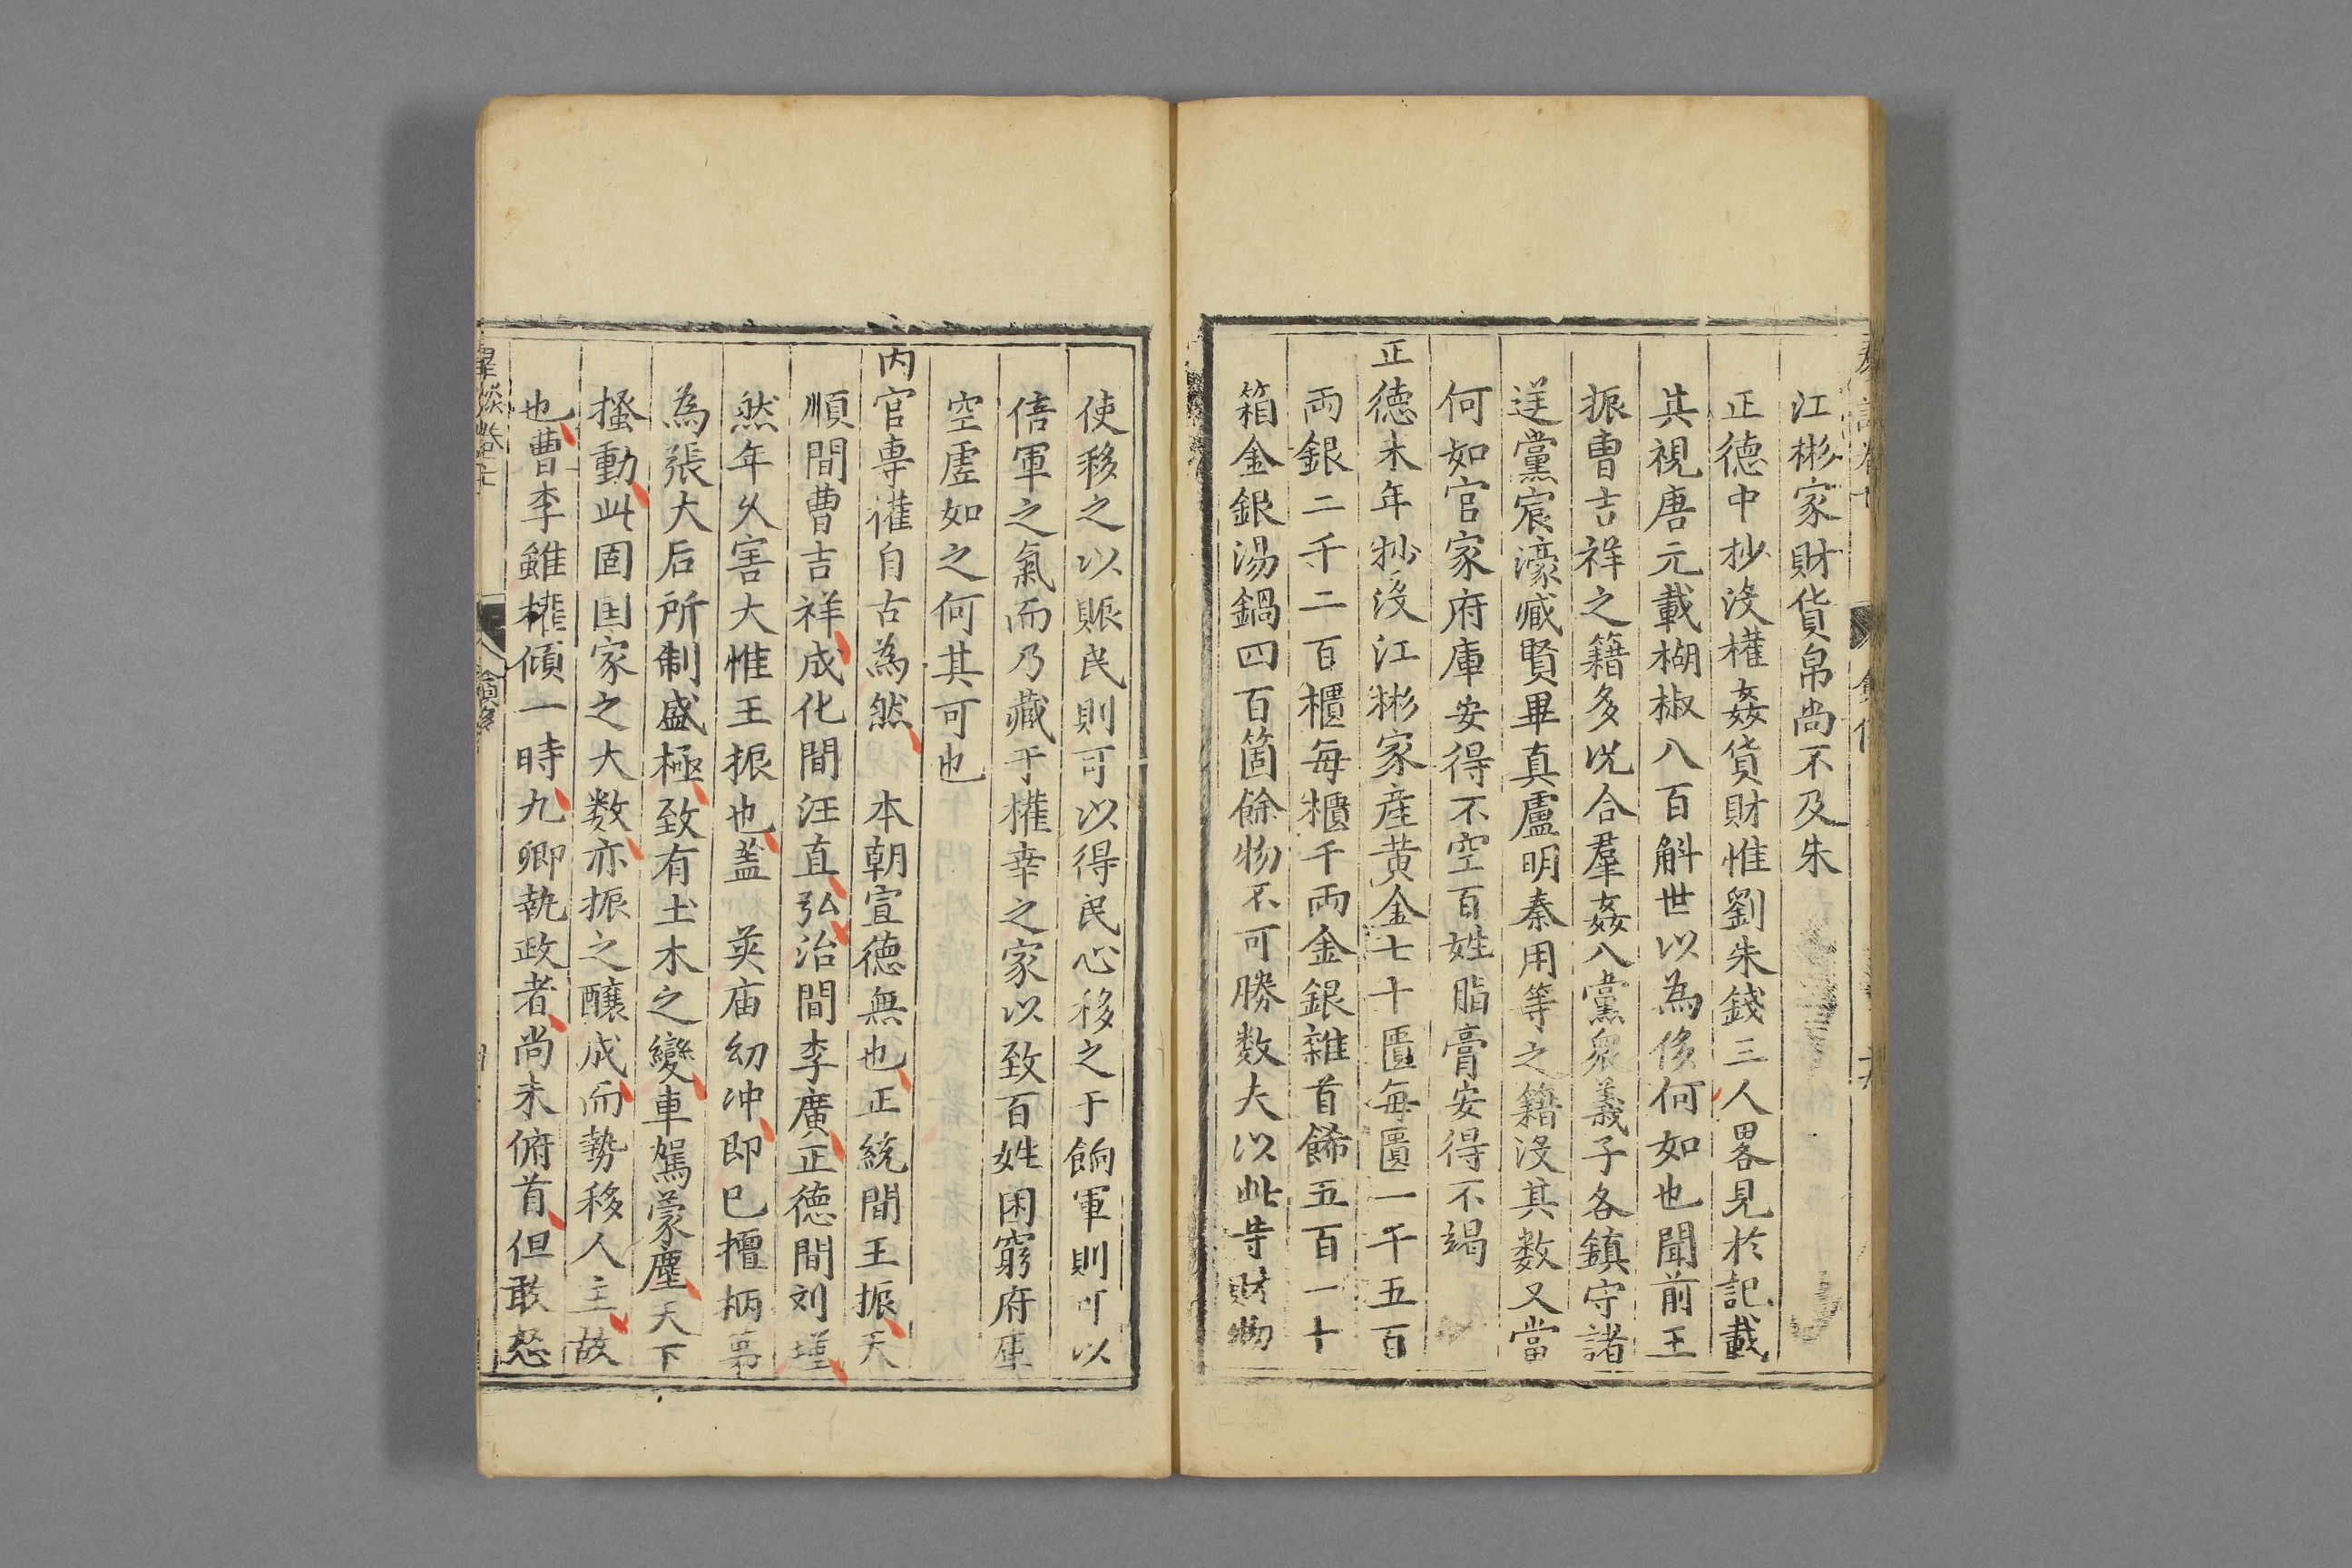 江彬家財貨帛尚不及朱
正德中抄没權姦貨財惟劉朱錢三人畧見於記載
其視唐元載楜椒八百斛世以為侈何如也聞前王
振曹吉祥之籍多况合羣姦八黨衆義子各鎮守諸
逆黨宸濠臧賢畢真盧明秦用等之籍没其数又當
何如官家府庫安得不空百姓脂膏安得不竭
正德末年抄没江彬家産黄金七十匱每匱一千五百
両銀二千二百櫃每櫃千両金銀雜首餙五百一十
箱金銀湯鍋四百箇餘物不可勝数夫以此䓁財物
使移之以賑民則可以得民心移之于餉軍則可以
倍軍之氣而乃藏于權幸之家以致百姓困窮府庫
空虗如之何其可也
内官專權自古為然　本朝宣德無也正統間王振天
順間曹吉祥成化間汪直弘治間李廣正德間刘瑾
然年久害大惟王振也盖　英庙幼冲即已擅柄幕
為張大后所制盛極致有土木之變車駕蒙塵天下
搔動此固囯家之大数亦振之釀成而勢移人主故
也曹李雖權傾一時九卿執政者尚未俯首但敢怒